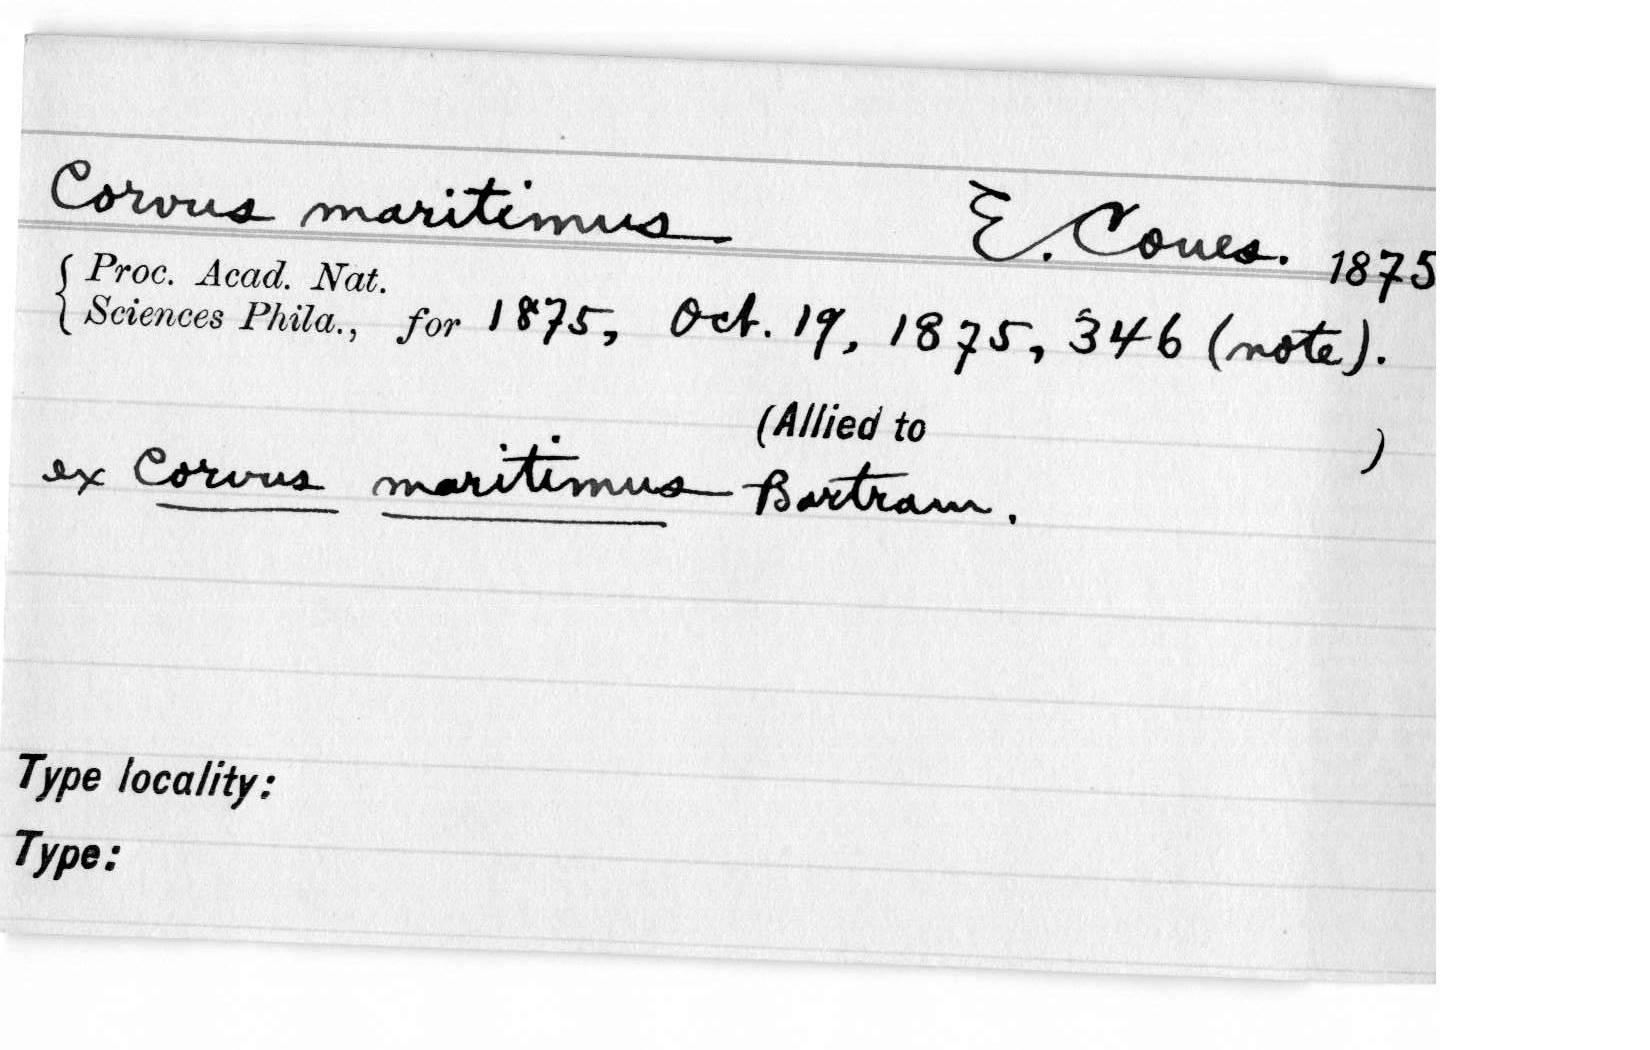 Corvus maritimus E. Coues. 1875
{ Proc. Acad. Nat.
Sciences Phila., for 1875, Oct. 19, 1875, 346 (note).
(Allied to )
ex Corvus maritimus Bartram.
Type locality:
Type: